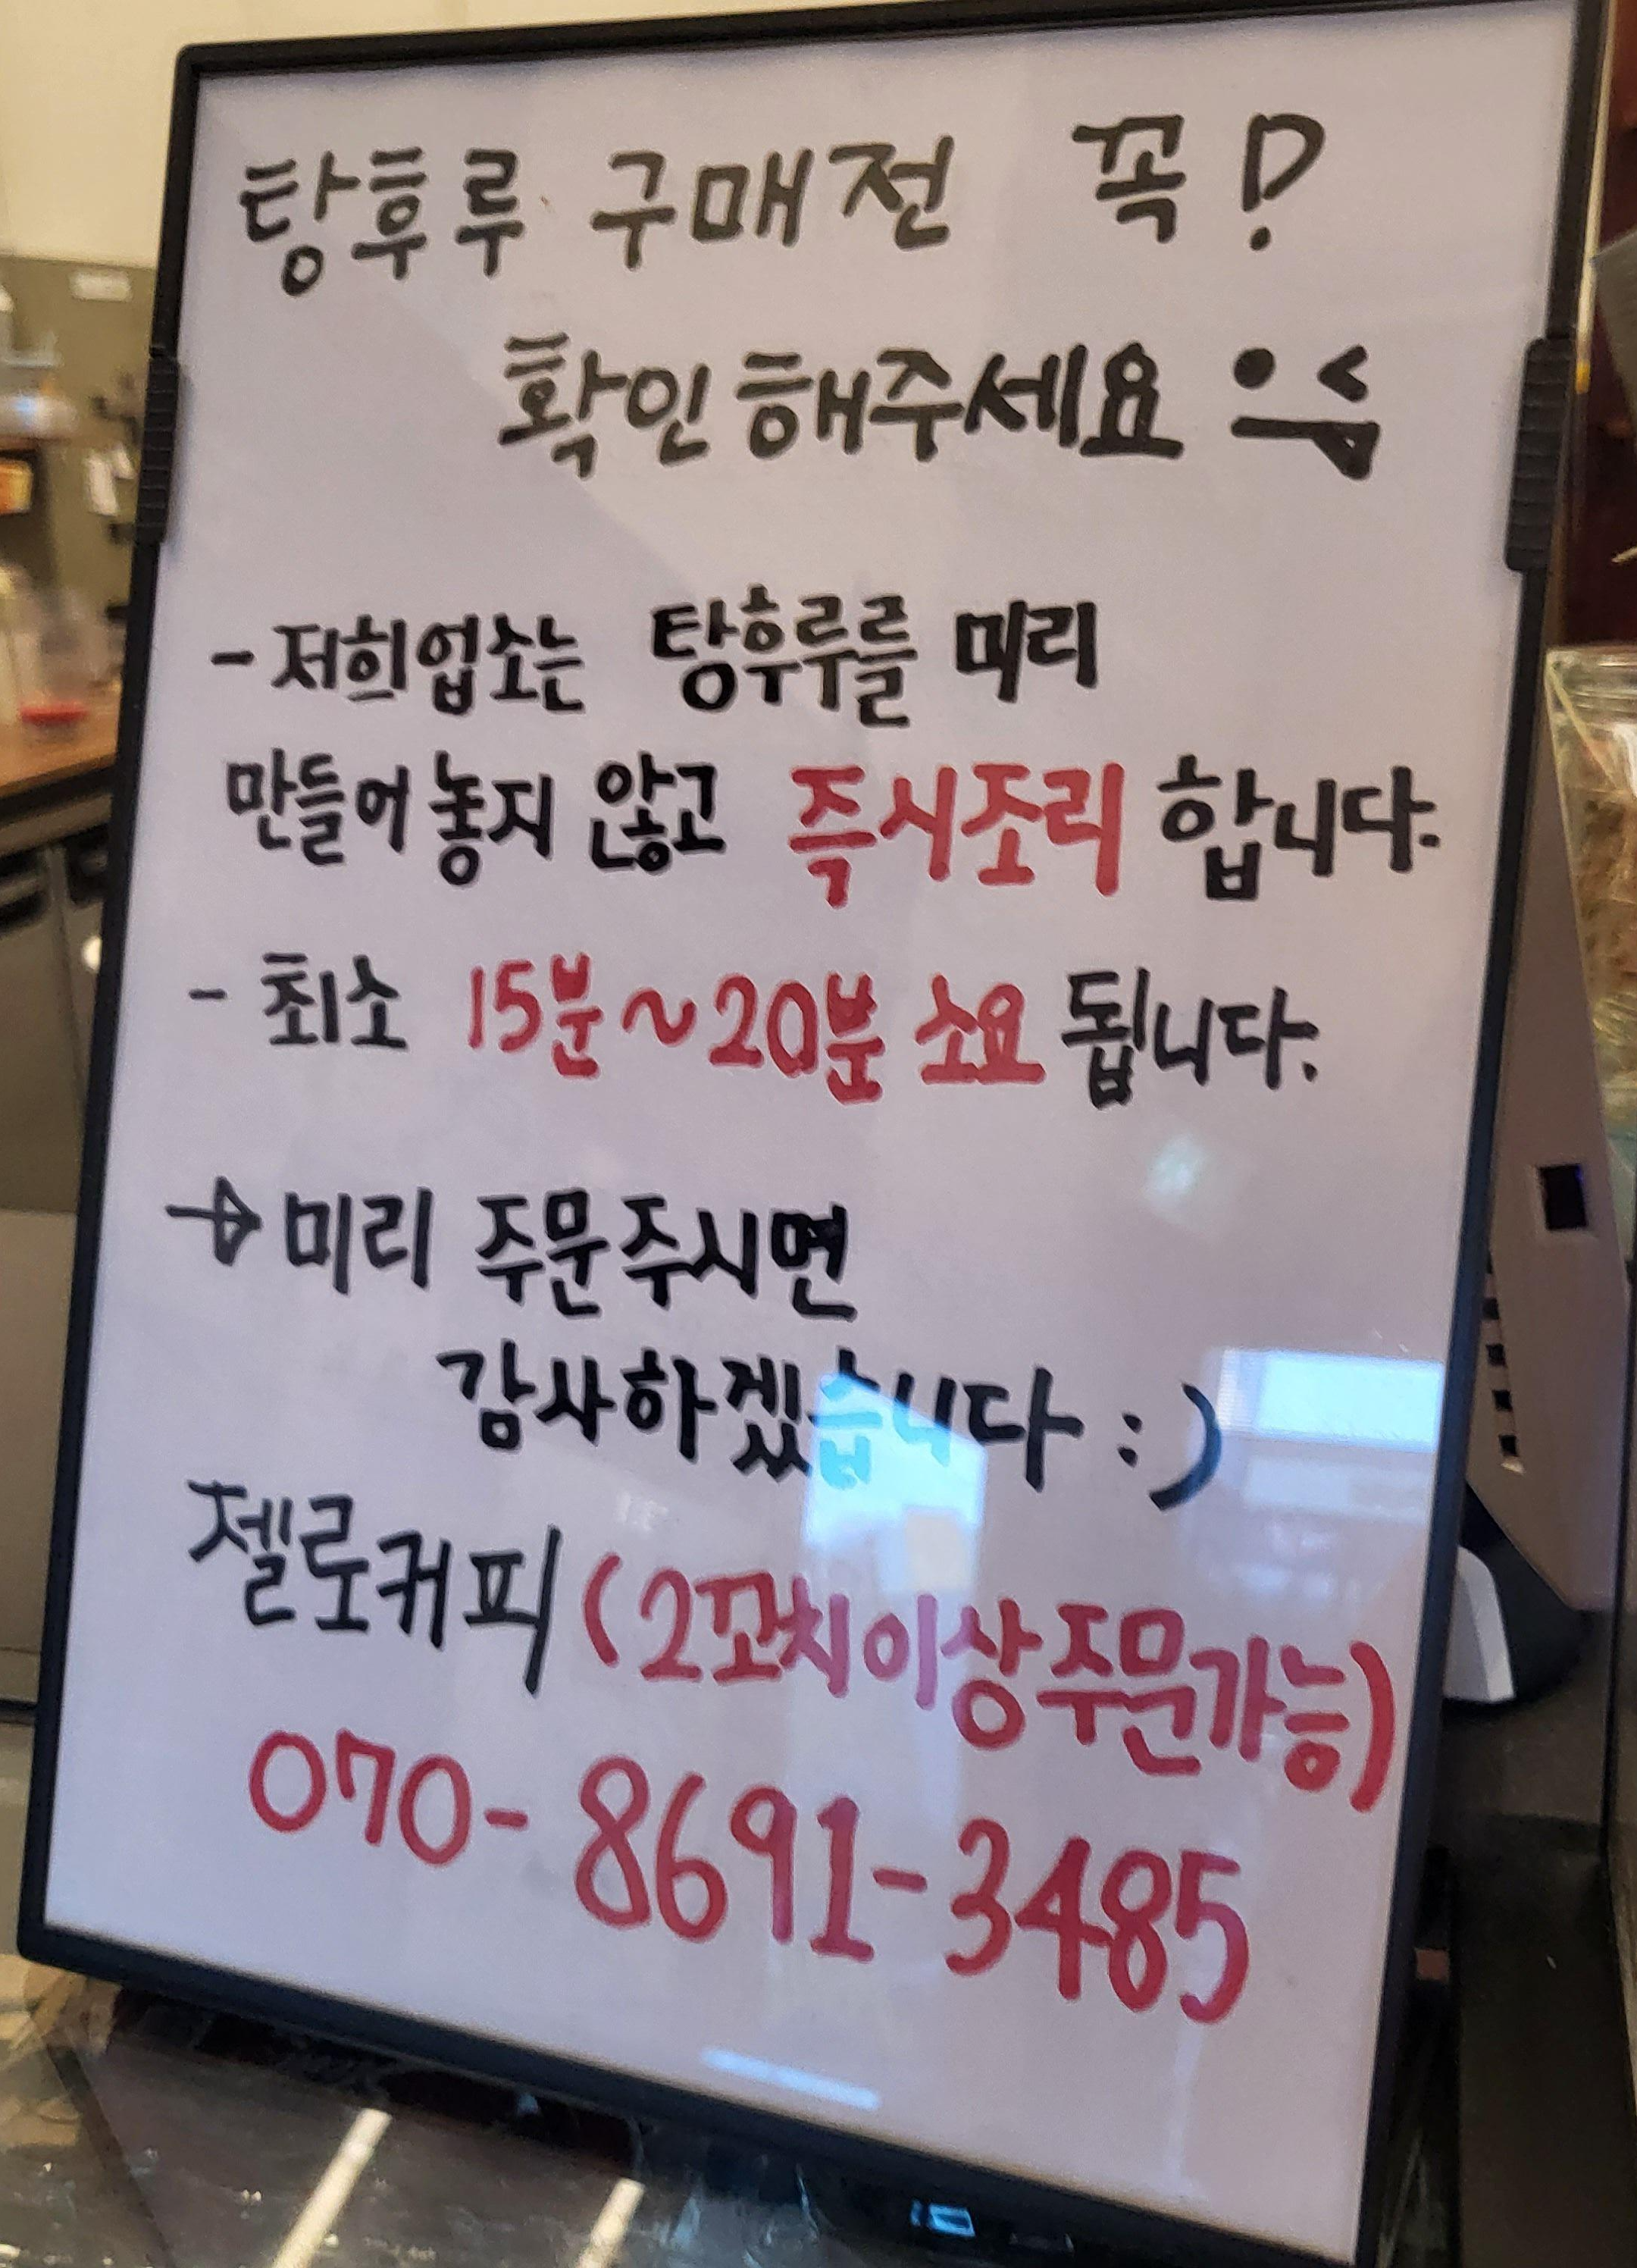 탕후루 구매전 꼭!
확인해주세요
- 저희업소는 탕후루를 미리
만들어 놓지 않고 즉시조리 합니다.
- 최소 15분~20분 소요 됩니다.
→ 미리 주문주시면
감사하겠습니다 :)
젤로커피 (2꼬치이상주문가능)
070-8691-3485